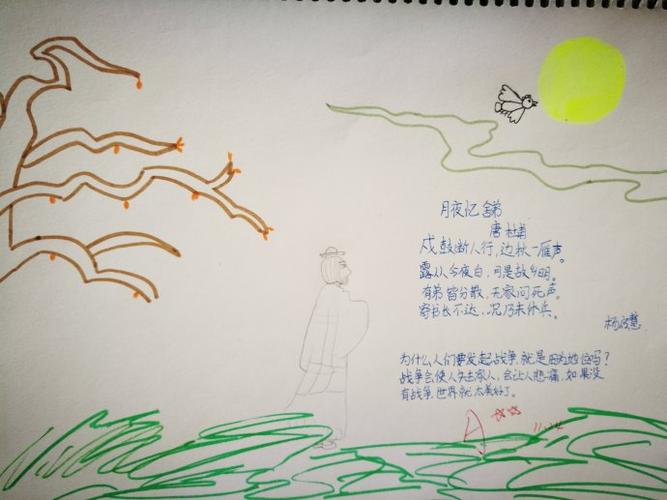 月夜忆舍弟
唐 杜甫
戍鼓断人行，边秋一雁声。
露从今夜白，月是故乡明。
有弟皆分散，无家问死声。
寄书长不达，况乃未休兵。
杨欣慧
为什么人们要发起战争，就是因为地位吗？
战争会使人失去家人，会让人悲痛，如果没
有战争，世界就太美好了。
A
11.24